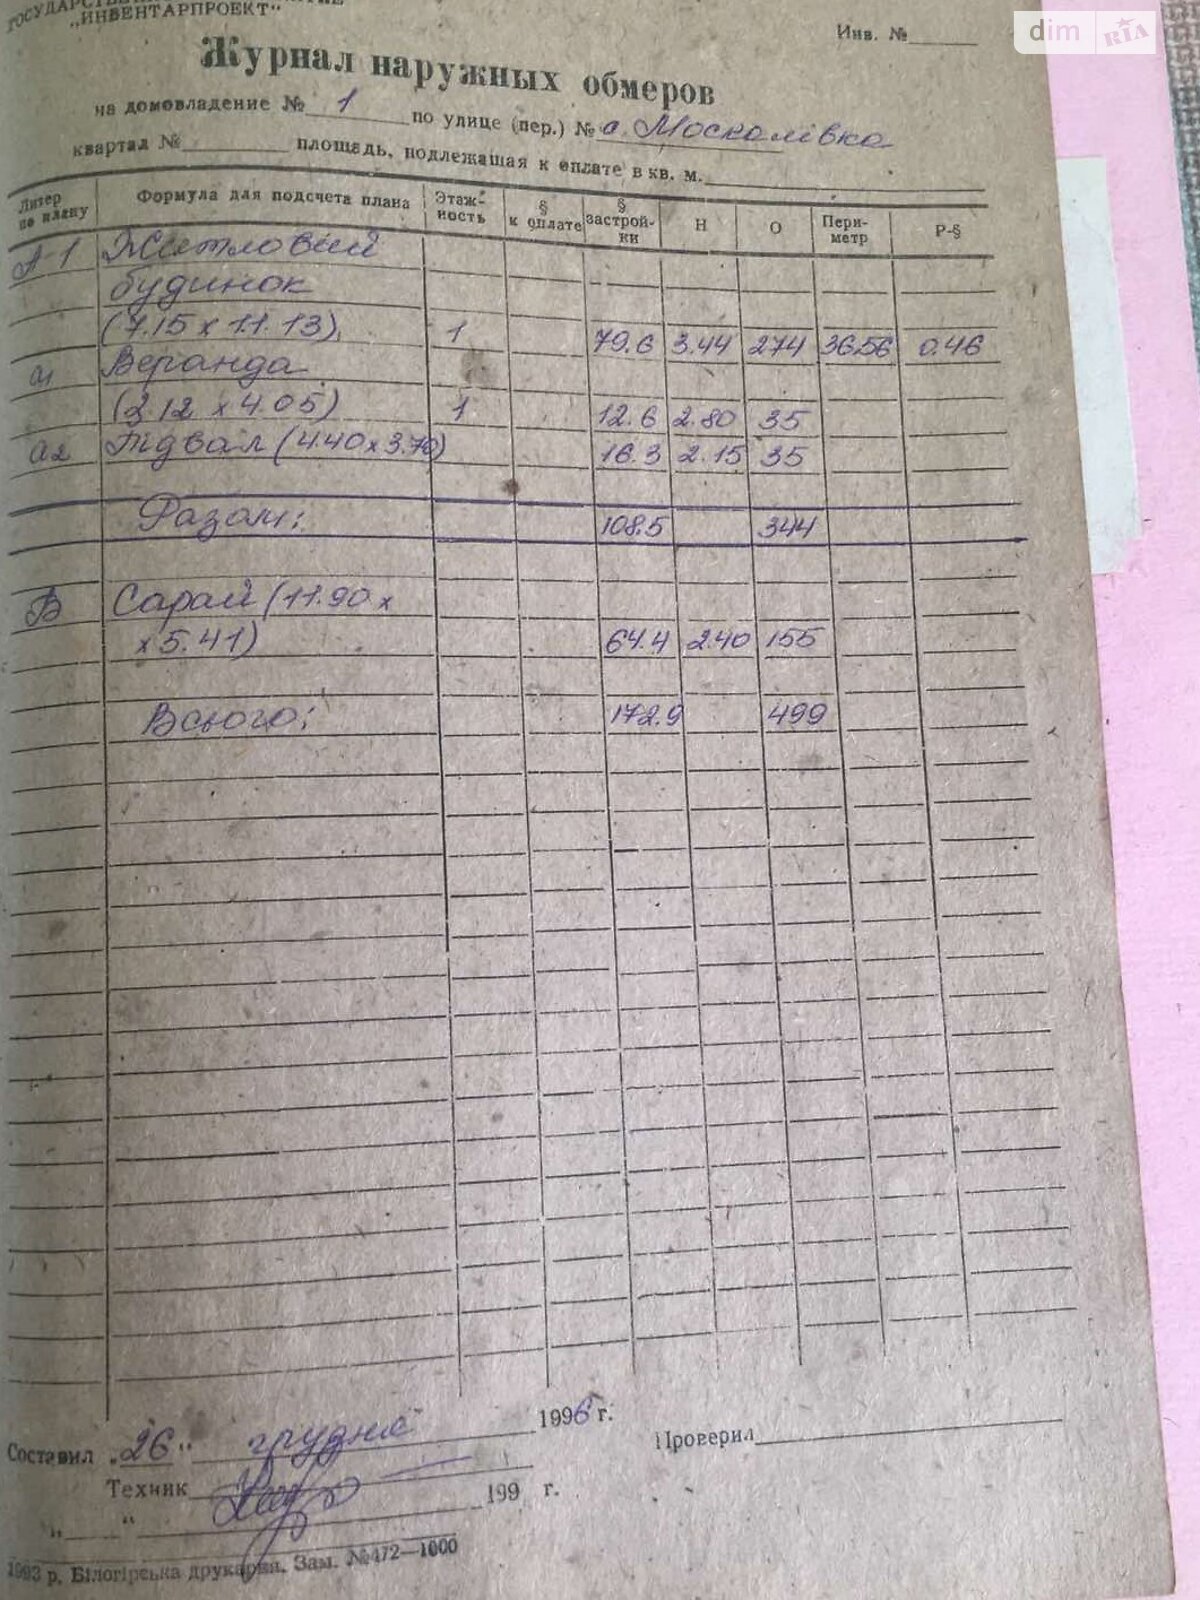 „ИНВЕНТАРПРОЕКТ“
dim RIA
Инв. №
Журнал наружных обмеров
на домовладение № 1 по улице (пер.) № с. Москалівка
квартал № площадь, подлежащая к оплате в кв. м.
Литер по плану Формула для подсчета плана Этаж-ность § к оплате § застрой-ки Н О Пери-метр Р-§
А-1 Житловий
будинок
(7.15 х 11.13) 1 79.6 3.44 274 36.56 0.46
а1 Веранда
(3.12 х 4.05) 1 12.6 2.80 35
а2 Підвал (4.40 х 3.70) 16.3 2.15 35
Разом: 108.5 344
Б Сарай (11.90 х
х 5.41) 64.4 2.40 155
Всього: 172.9 499
Составил „26“ грудня 1996 г. Проверил
Техник
„ “ 199 г.
1993 р. Білогірська друкарня. Зам. №472—1000